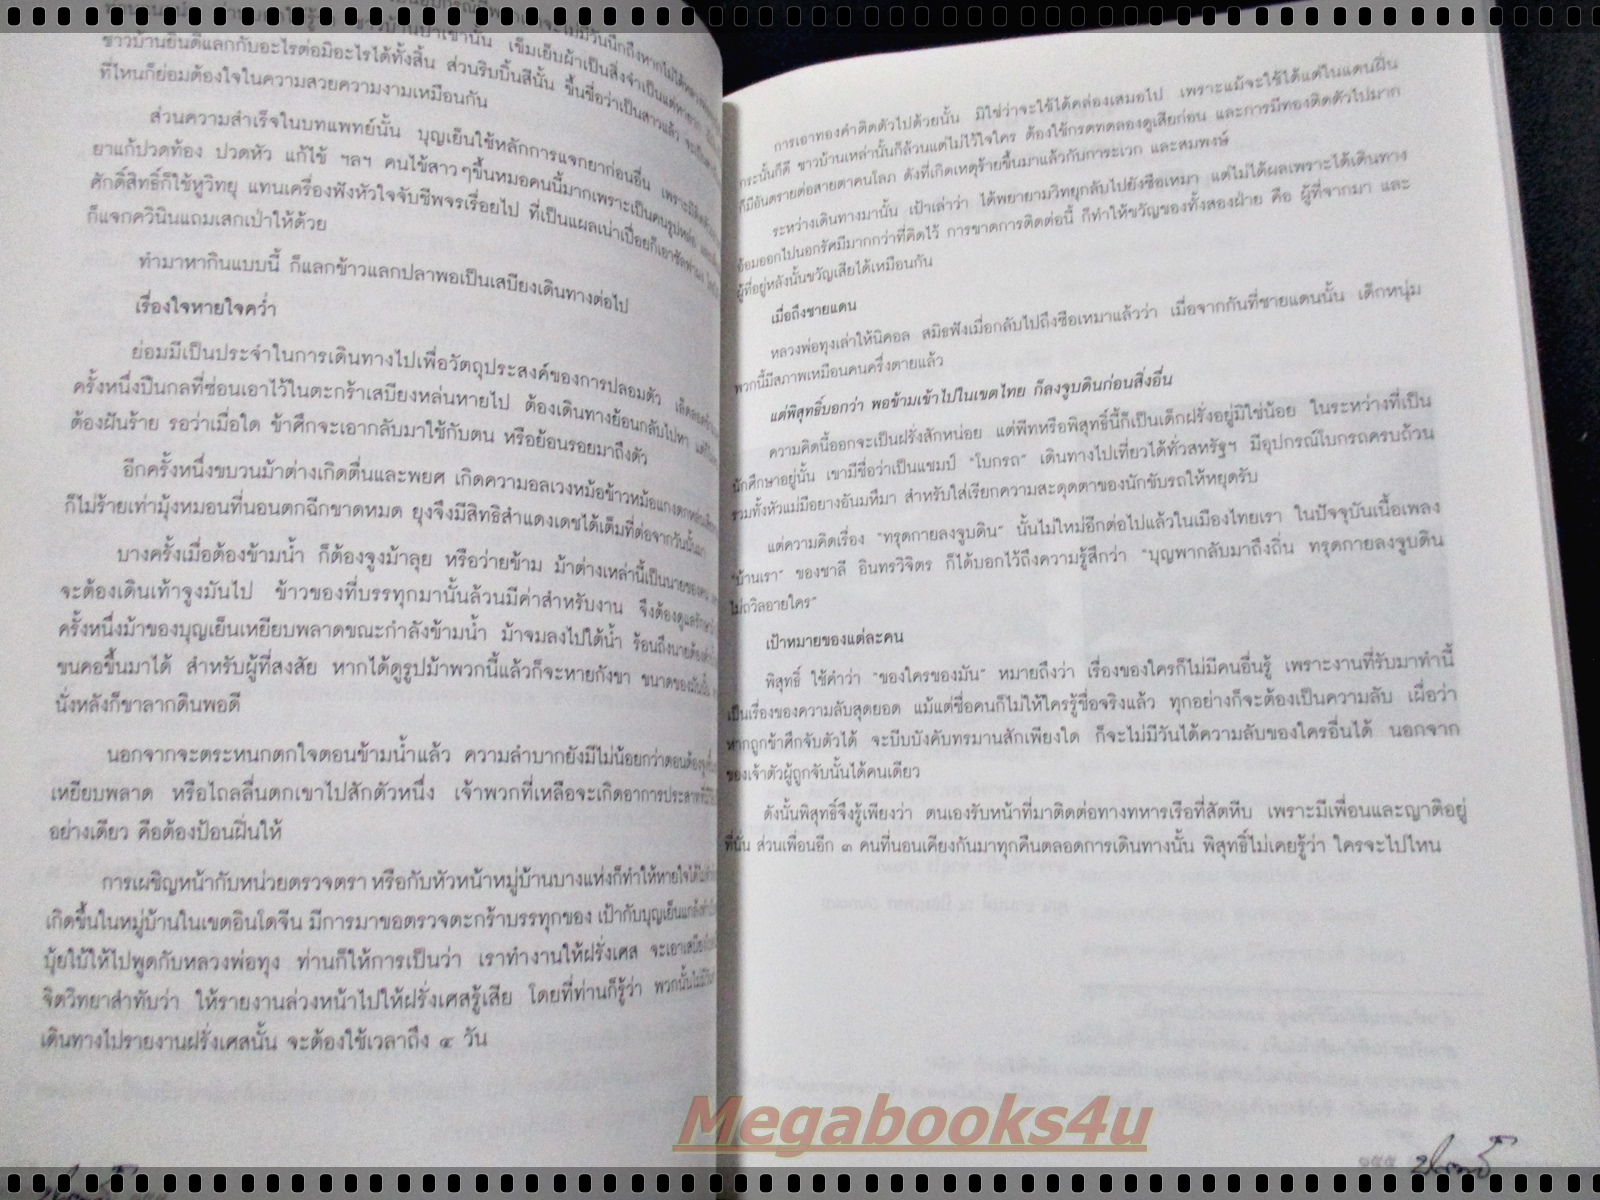 ชาวบ้านยินดีแลกกับอะไรต่อมิอะไรได้ทั้งสิ้น ส่วนริบบิ้นสีนั้น ขึ้นชื่อว่าเป็นสาวแล้ว
ที่ไหนก็ย่อมต้องใจในความสวยความงามเหมือนกัน
ส่วนความสำเร็จในบทแพทย์นั้น บุญเย็นใช้หลักการแจกยาก่อนอื่น
ยาแก้ปวดท้อง ปวดหัว แก้ไข้ ฯลฯ คนไข้สาวๆขึ้นหมอคนนี้มากเพราะเป็นคนรูปหล่อ
ศักดิ์สิทธิ์ก็ใช้หูวิทยุ แทนเครื่องฟังหัวใจจับชีพจรเรื่อยไป ที่เป็นแผลเน่าเปื่อยก็เอา
ก็แจกควินินแถมเสกเป่าให้ด้วย
ทำมาหากินแบบนี้ ก็แลกข้าวแลกปลาพอเป็นเสบียงเดินทางต่อไป
เรื่องใจหายใจคว่ำ
ย่อมมีเป็นประจำในการเดินทางไปเพื่อวัตถุประสงค์ของการปลอมตัว
ครั้งหนึ่งปืนกลที่ซ่อนเอาไว้ในตะกร้าเสบียงหล่นหายไป ต้องเดินทางย้อนกลับไปหา
ต้องฝันร้าย รอว่าเมื่อใด ข้าศึกจะเอากลับมาใช้กับตน หรือย้อนรอยมาถึงตัว
อีกครั้งหนึ่งขบวนม้าต่างเกิดตื่นและพยศ เกิดความอลเวงหม้อข้าวหม้อแกงตกหล่น
ก็ไม่ร้ายเท่ามุ้งหมอนที่นอนตกฉีกขาดหมด ยุงจึงมีสิทธิสำแดงเดชได้เต็มที่ต่อจากวันนั้นมา
บางครั้งเมื่อต้องข้ามน้ำ ก็ต้องจูงม้าลุย หรือว่ายข้าม ม้าต่างเหล่านี้เป็นนายของคน
จะต้องเดินเท้าจูงมันไป ข้าวของที่บรรทุกมานั้นล้วนมีค่าสำหรับงาน จึงต้องดูแลรักษา
ครั้งหนึ่งม้าของบุญเย็นเหยียบพลาดขณะกำลังข้ามน้ำ ม้าจมลงไปใต้น้ำ ร้อนถึงนายต้อง
ขนคอขึ้นมาได้ สำหรับผู้ที่สงสัย หากได้ดูรูปม้าพวกนี้แล้วก็จะหายกังขา ขนาดของมันนั้น
นั่งหลังก็ขาลากดินพอดี
นอกจากจะตระหนกตกใจตอนข้ามน้ำแล้ว ความลำบากยังมีไม่น้อยกว่าตอนต้อง
เหยียบพลาด หรือไถลลื่นตกเขาไปสักตัวหนึ่ง เจ้าพวกที่เหลือจะเกิดอาการประสาท
อย่างเดียว คือต้องป้อนฝิ่นให้
การเผชิญหน้ากับหน่วยตรวจตรา หรือกับหัวหน้าหมู่บ้านบางแห่งก็ทำให้หายใจ
เกิดขึ้นในหมู่บ้านในเขตอินโดจีน มีการมาขอตรวจตะกร้าบรรทุกของ เป้ากับบุญเย็นแกล้ง
บุ้ยใบ้ให้ไปพูดกับหลวงพ่อทุง ท่านก็ให้การเป็นว่า เราทำงานให้ฝรั่งเศส จะเอา
จิตวิทยาสำทับว่า ให้รายงานล่วงหน้าไปให้ฝรั่งเศสรู้เสีย โดยที่ท่านก็รู้ว่า พวกนั้นไม่มี
เดินทางไปรายงานฝรั่งเศสนั้น จะต้องใช้เวลาถึง ๔ วัน
การเอาทองคำติดตัวไปด้วยนั้น มิใช่ว่าจะใช้ได้คล่องเสมอไป เพราะแม้จะใช้ได้แต่ในแดนฝิ่น
กระนั้นก็ดี ชาวบ้านเหล่านั้นก็ล้วนแต่ไม่ไว้ใจใคร ต้องใช้กรดทดลองดูเสียก่อน และการมีทองติดตัวไปมาก
ก็มีอันตรายต่อสายตาคนโลภ ดังที่เกิดเหตุร้ายขึ้นมาแล้วกับการะเวก และสมพงษ์
ระหว่างเดินทางมานั้น เป้าเล่าว่า ได้พยายามวิทยุกลับไปยังซือเหมา แต่ไม่ได้ผลเพราะได้เดินทาง
อ้อมออกไปนอกรัศมีมากกว่าที่คิดไว้ การขาดการติดต่อนี้ ก็ทำให้ขวัญของทั้งสองฝ่าย คือ ผู้ที่จากมา และ
ผู้ที่อยู่หลังนั้นขวัญเสียได้เหมือนกัน
เมื่อถึงชายแดน
หลวงพ่อทุงเล่าให้นิคอล สมิธฟังเมื่อกลับไปถึงซือเหมาแล้วว่า เมื่อจากกันที่ชายแดนนั้น เด็กหนุ่ม
พวกนี้มีสภาพเหมือนคนครึ่งตายแล้ว
แต่พิสุทธิ์บอกว่า พอข้ามเข้าไปในเขตไทย ก็ลงจูบดินก่อนสิ่งอื่น
ความคิดนี้ออกจะเป็นฝรั่งสักหน่อย แต่พีทหรือพิสุทธิ์นี้ก็เป็นเด็กฝรั่งอยู่มิใช่น้อย ในระหว่างที่เป็น
นักศึกษาอยู่นั้น เขามีชื่อว่าเป็นแชมป์ “โบกรถ” เดินทางไปเที่ยวได้ทั่วสหรัฐฯ มีอุปกรณ์โบกรถครบถ้วน
รวมทั้งหัวแม่มือยางอันมหึมา สำหรับใส่เรียกความสะดุดตาของนักขับรถให้หยุดรับ
แต่ความคิดเรื่อง “ทรุดกายลงจูบดิน” นั้นไม่ใหม่อีกต่อไปแล้วในเมืองไทยเรา ในปัจจุบันเนื้อเพลง
“บ้านเรา” ของชาลี อินทรวิจิตร ก็ได้บอกไว้ถึงความรู้สึกว่า “บุญพากลับมาถึงถิ่น ทรุดกายลงจูบดิน
ไม่ถวิลอายใคร”
เป้าหมายของแต่ละคน
พิสุทธิ์ ใช้คำว่า “ของใครของมัน” หมายถึงว่า เรื่องของใครก็ไม่มีคนอื่นรู้ เพราะงานที่รับมาทำนี้
เป็นเรื่องของความลับสุดยอด แม้แต่ชื่อคนก็ไม่ให้ใครรู้ชื่อจริงแล้ว ทุกอย่างก็จะต้องเป็นความลับ เผื่อว่า
หากถูกข้าศึกจับตัวได้ จะบีบบังคับทรมานสักเพียงใด ก็จะไม่มีวันได้ความลับของใครอื่นได้ นอกจาก
ของเจ้าตัวผู้ถูกจับนั้นได้คนเดียว
ดังนั้นพิสุทธิ์จึงรู้เพียงว่า ตนเองรับหน้าที่มาติดต่อทางทหารเรือที่สัตหีบ เพราะมีเพื่อนและญาติอยู่
ที่นั่น ส่วนเพื่อนอีก ๓ คนที่นอนเคียงกันมาทุกคืนตลอดการเดินทางนั้น พิสุทธิ์ไม่เคยรู้ว่า ใครจะไปไหน
Megabooks4u